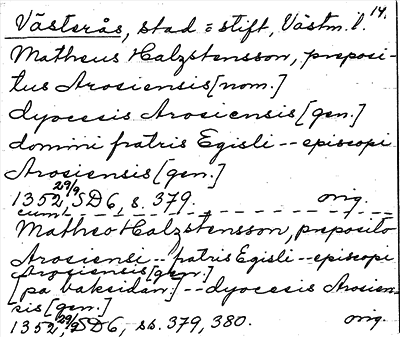 14.
Västerås, stad o stift, Västm. l.
Matheus Halzstensson, preposi-
tus Arosiensis [nom.]
dyocesis Arosiensis [gen.]
domini fratris Egisli -- episcopi
Arosiensis [gen.]
1352 29/9, SD 6, s. 379. orig.
cum
Matheo Halzstensson, preposito
Arosiensi -- fratris Egisli -- episcopi
Arosiensis [gen.]
[på baksidan:] -- dyocesis Arosien-
sis [gen.]
1352 29/9, SD 6, ss. 379, 380. orig.